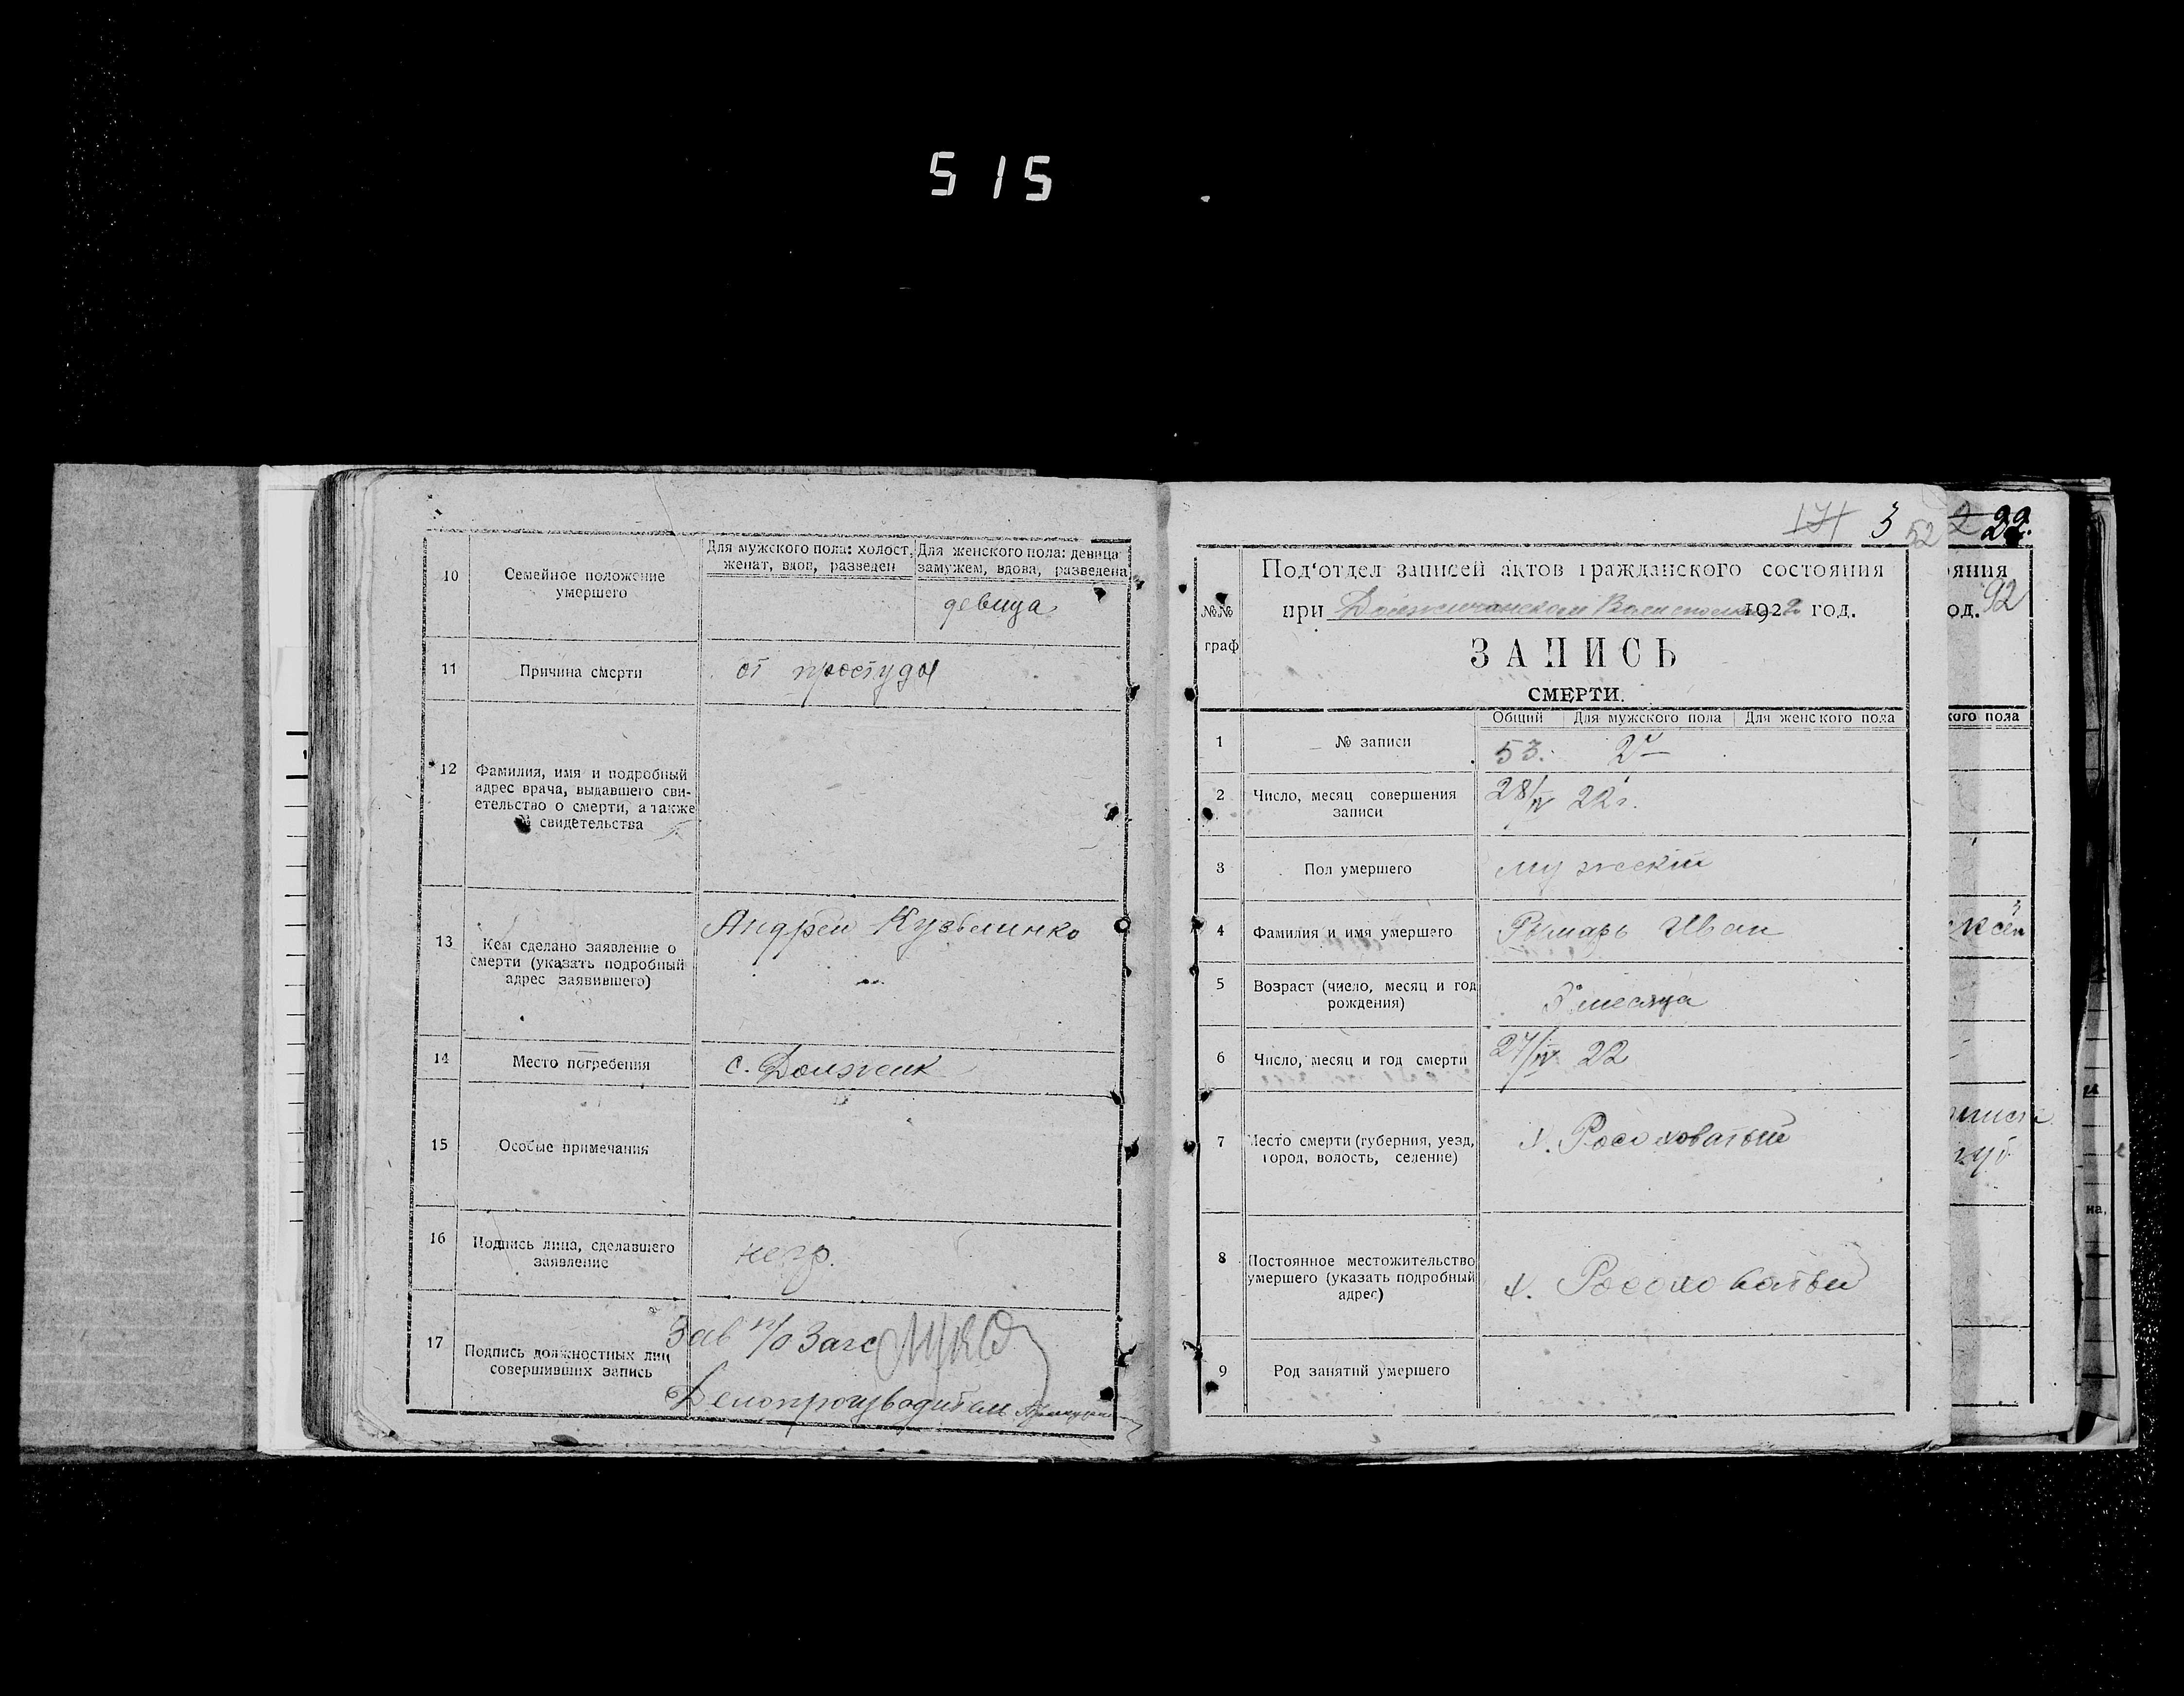 515
10
Семейное положение
умершего
Для мужского пола: холост,
женат, вдов, разведен
Для женского пола: девица
замужем, вдова, разведена
девица
11
Причина смерти
от простуды
12
Фамилия, имя и подробный
адрес врача, выдавшего сви-
етельство о смерти, а также
свидетельства
13
Кем сделано заявление о
смерти (указать подробный
адрес заявившего)
Андрей Кузьминко
14
Место погребения
с. Должик
15
Особые примечания
16
Подпись лица, сделавшего
заявление
негр.
17
Подпись должностных лиц
совершивших запись
Зав п/о Загс
Делопроизводитель
171 3 52
№№
граф
Под'отдел записей актов гражданского состояния
при 1922 год.
ЗАПИСЬ
СМЕРТИ.
Общий Для мужского пола Для женского пола
1
№ записи
53. 2
2
Число, месяц совершения
записи
28/IV 22 г.
3
Пол умершего
мужский
4
Фамилия и имя умершего
Рымарь Иван
5
Возраст (число, месяц и год
рождения)
3 месяца
6
Число, месяц и год смерти
27/IV 22
7
Место смерти (губерния, уезд,
город, волость, селение)
х. Росоховатый
8
Постоянное местожительство
умершего (указать подробный
адрес)
х. Росоховатый
9
Род занятий умершего
22.
ояния
од. 92
кого пола
на,